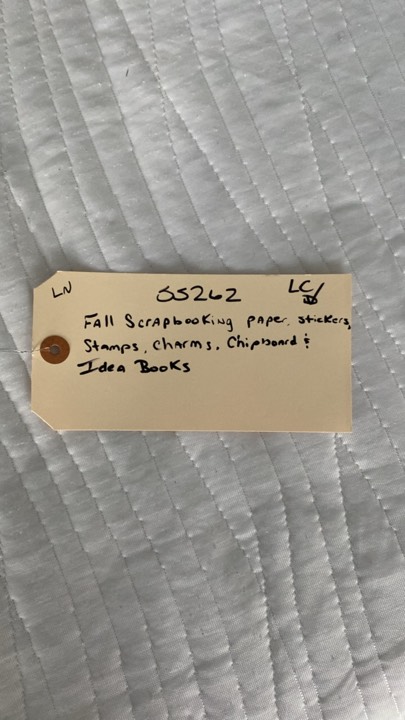 LN SS262 LC
Fall Scrapbooking paper, stickers,
Stamps, Charms, Chipboard &
Idea Books